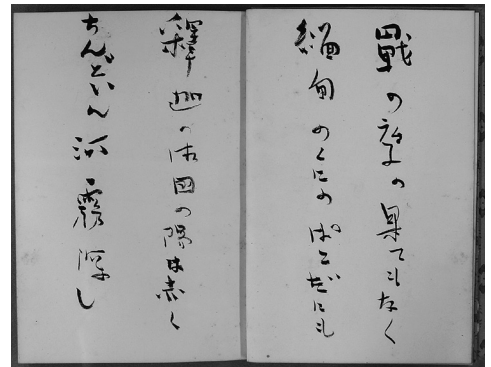 戰の の果てもなく
緬甸のくにのぱごだにも
釋迦の御国の陽は赤く
ちんどいん河霧深し